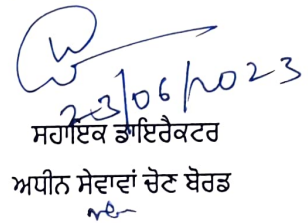 23/06/2023
ਸਹਾਇਕ ਡਾਇਰੈਕਟਰ
ਅਧੀਨ ਸੇਵਾਵਾਂ ਚੋਣ ਬੋਰਡ